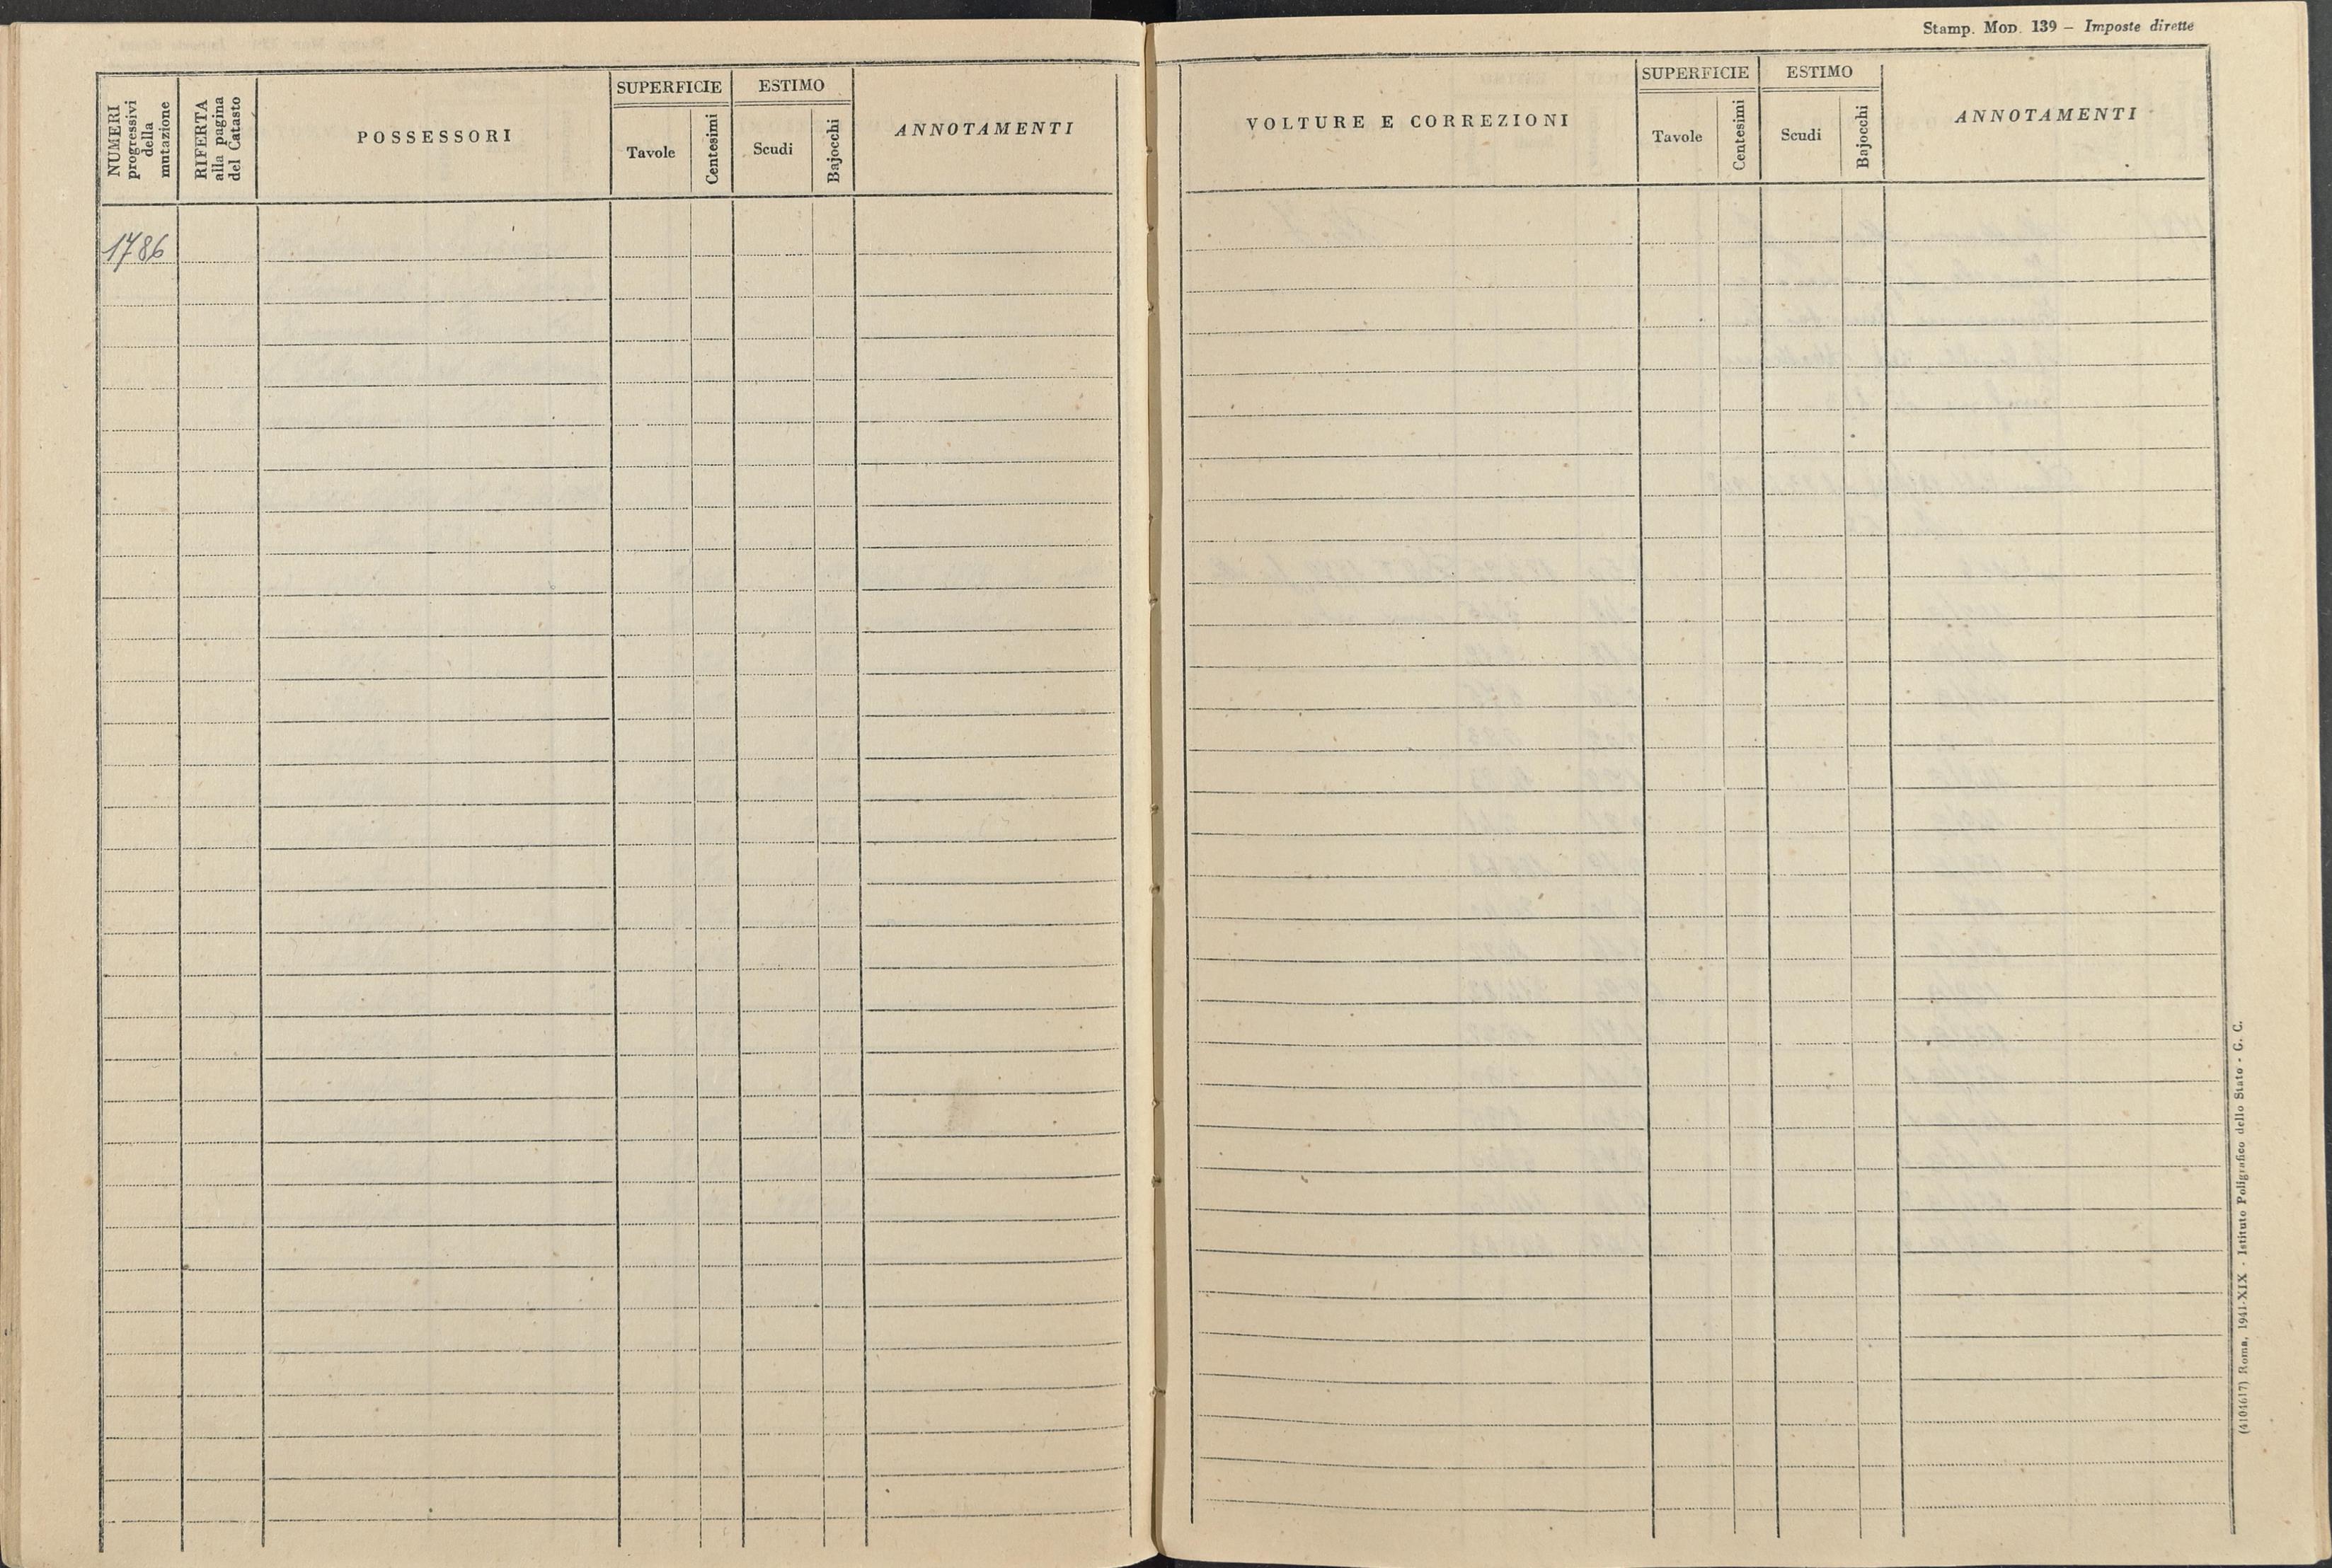 Stamp. Mod. 139 — Imposte dirette
NUMERI
progressivi
della
mutazione
RIFERTA
alla pagina
del Catasto
POSSESSORI
SUPERFICIE
Tavole
Centesimi
ESTIMO
Scudi
Bajocchi
ANNOTAMENTI
1786
VOLTURE E CORREZIONI
SUPERFICIE
Tavole
Centesimi
ESTIMO
Scudi
Bajocchi
ANNOTAMENTI
(410467) Roma, 1941-XIX - Istituto Poligrafico dello Stato - G. C.